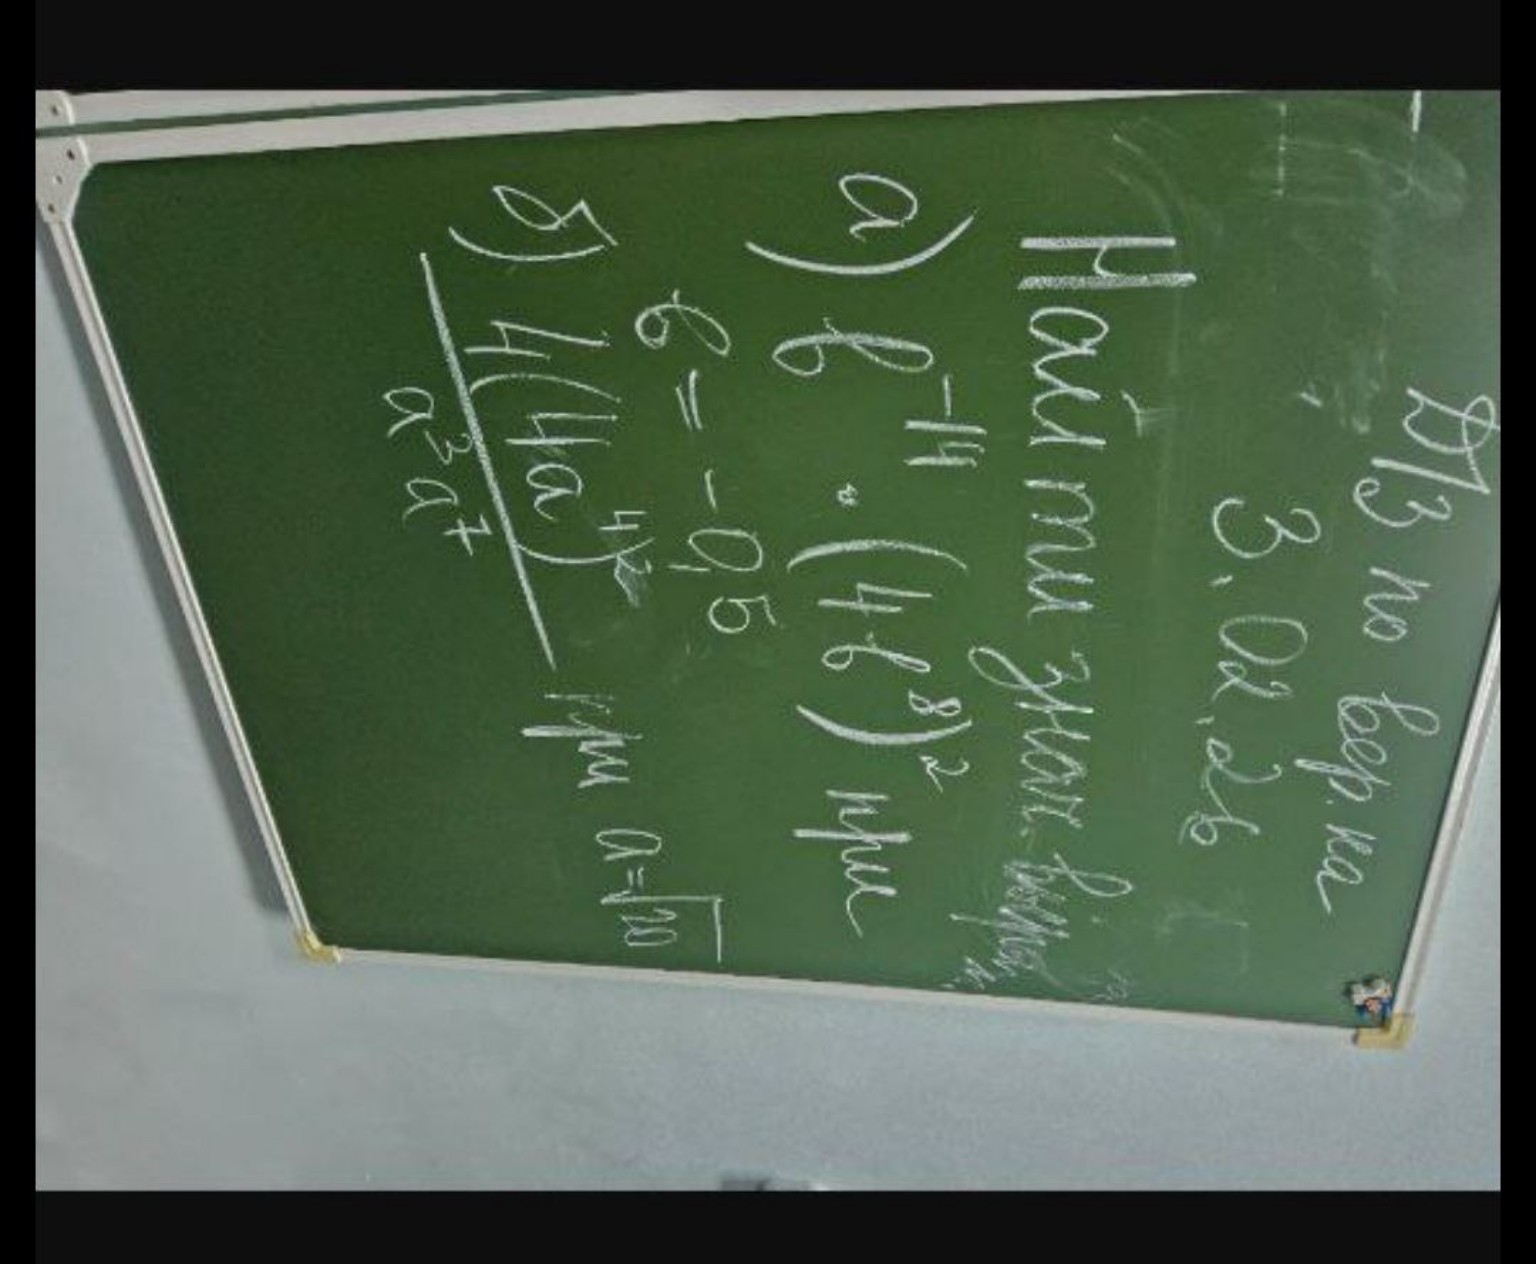 Д/З по вер. на
3. 02. 26
Найти знач. выр.
а) b⁻¹⁴ · (4·b⁸)² при
b = -0,5
б) 4(4a⁴)²
a³ a⁷
при a=√20